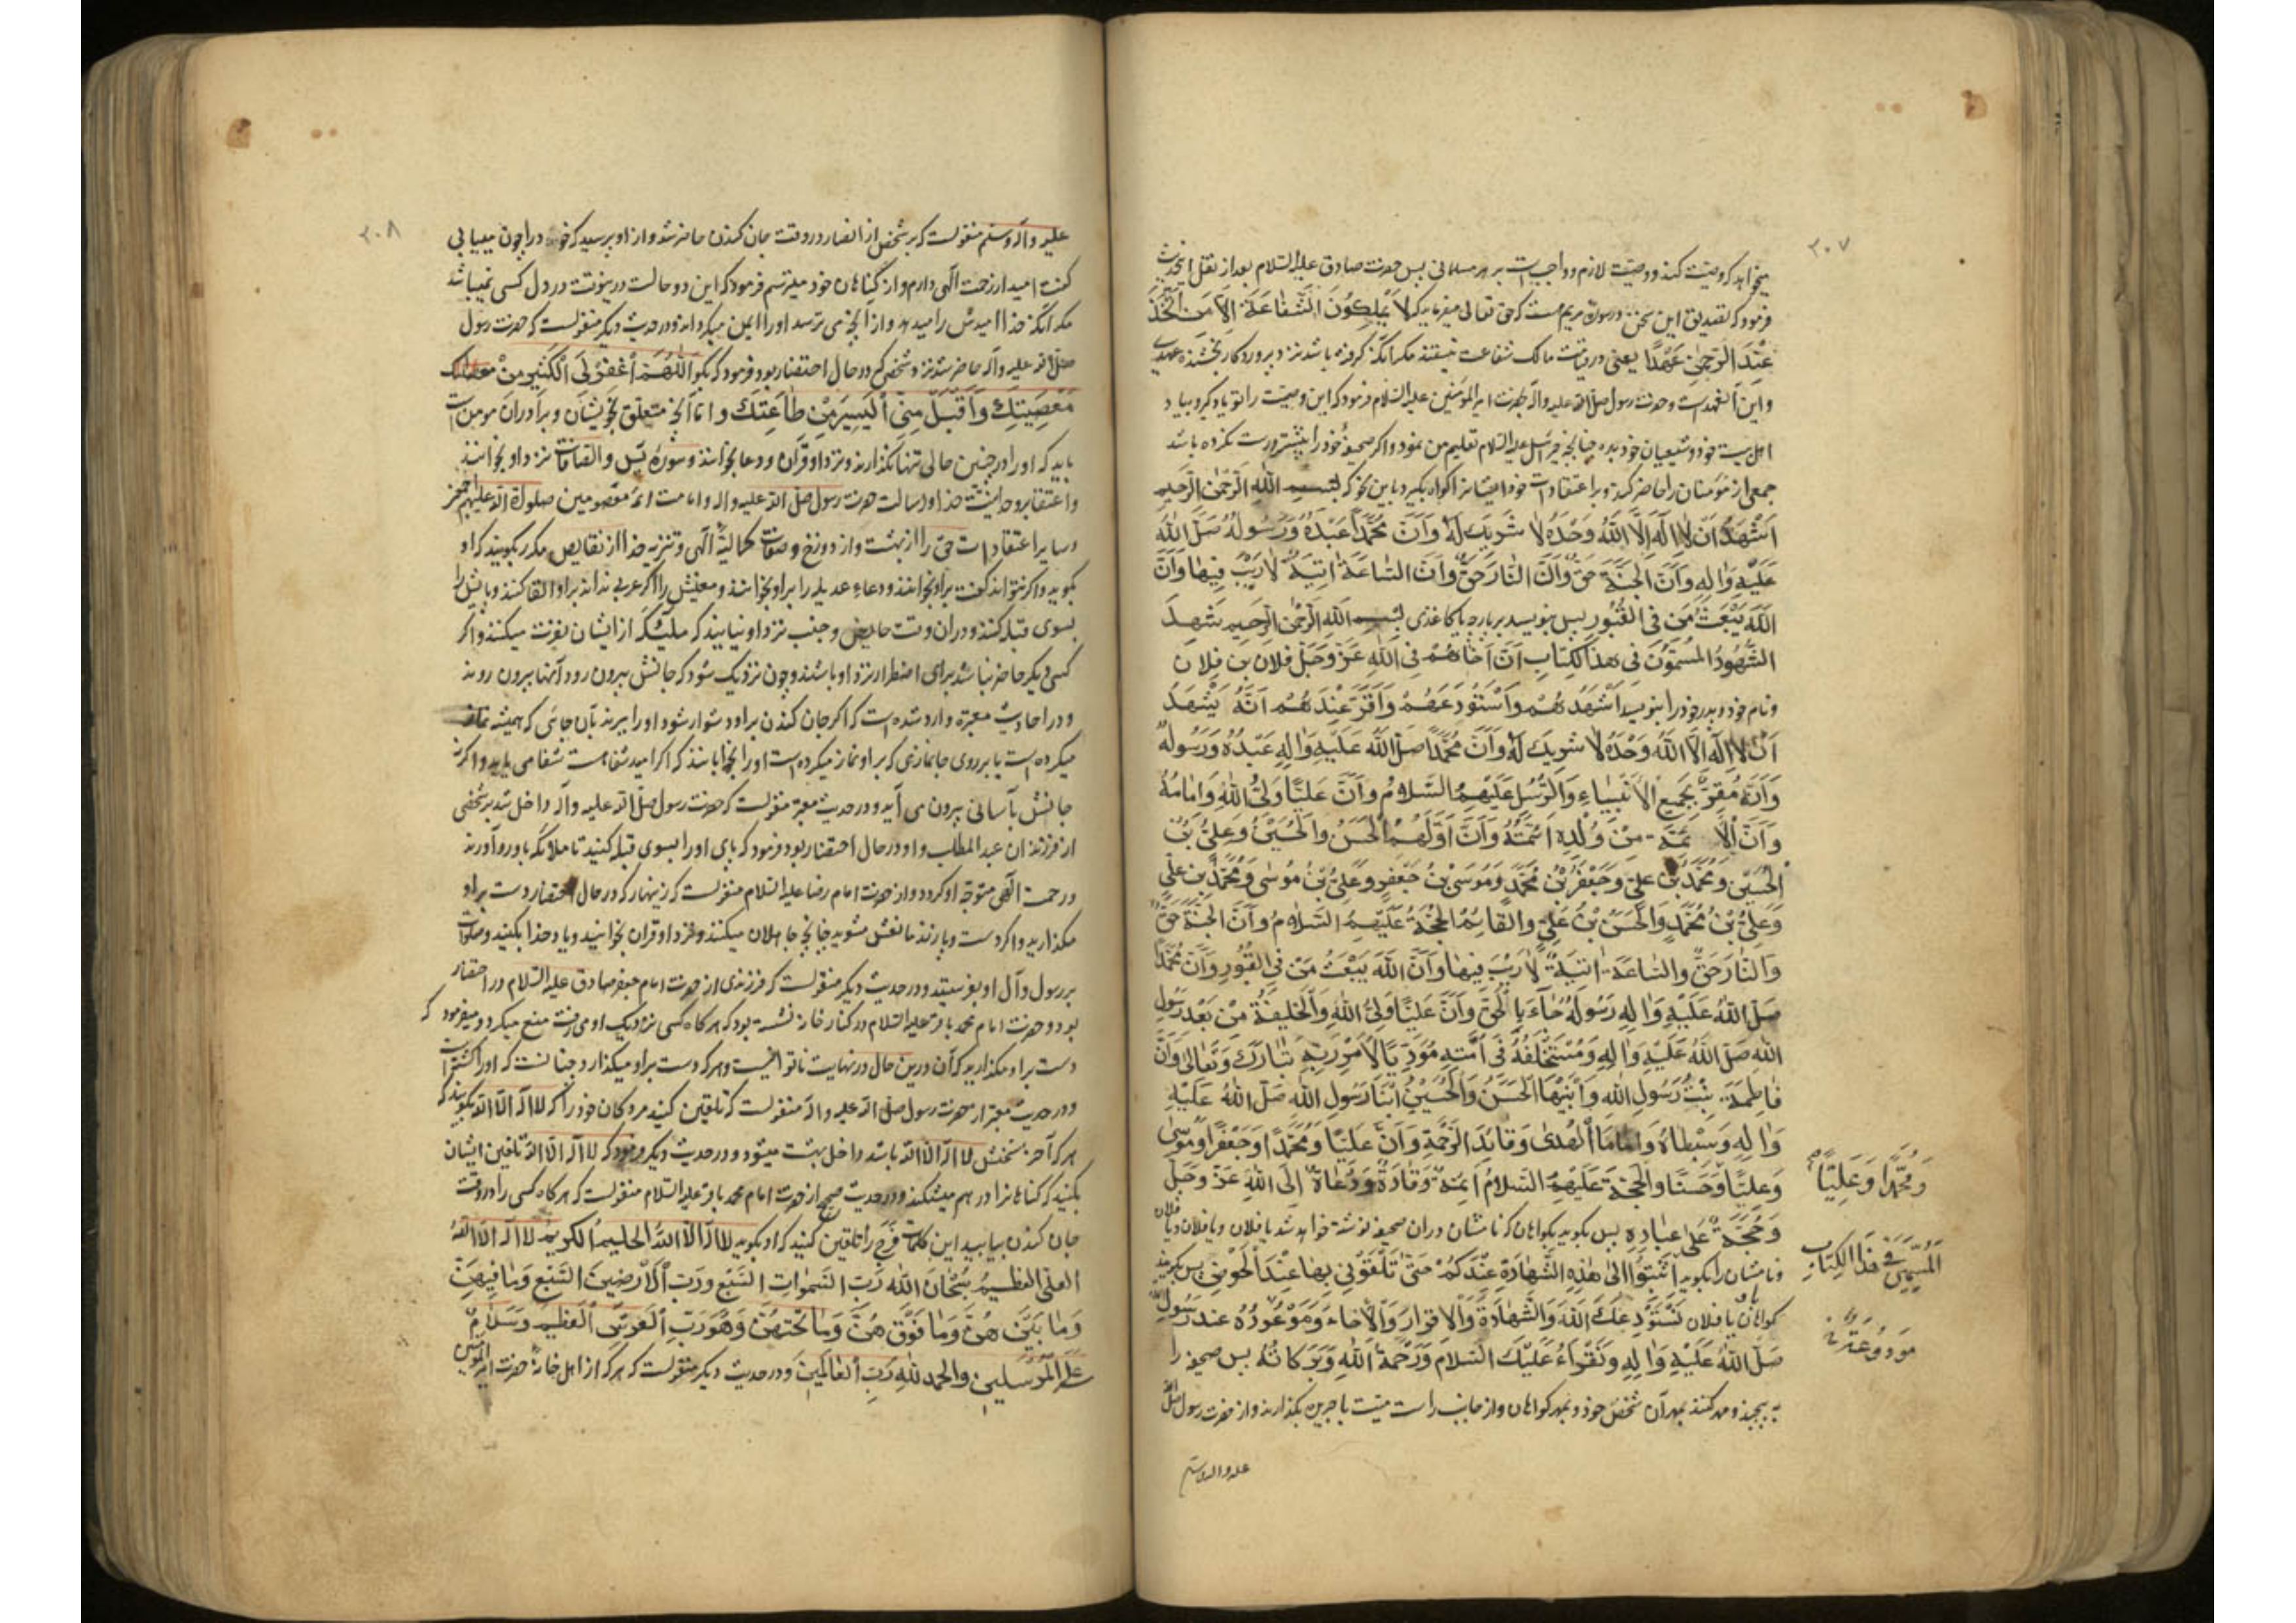 ۲۰۷
میخواهد که وصیت کند و وصیت لازم و واجب است بر هر مسلمانی پس حضرت صادق علیه السلام بعد از نقل این حدیث
فرمود که تصدیق این سخن در سوره مریم است که حق تعالی میفرماید که لَا يَمْلِكُونَ الشَّفَاعَةَ إِلَّا مَنِ اتَّخَذَ
عِنْدَ الرَّحْمٰنِ عَهْدًا یعنی در قیامت مالک شفاعت نیستند مگر آنکه گرفته باشد نزد پروردگار بخشنده عهدی
و این آن عهد است و حضرت رسول صلی الله علیه و آله بحضرت امیر المؤمنین علیه السلام فرمود که این وصیت را تو یاد گیر و بیاد
اهل بیت خود و شیعیان خود بده چنانچه جبرئیل علیه السلام تعلیم من نمود و اگر صحیفه خود را پیشتر درست نکرده باشد
جمعی از مؤمنان را حاضر کند و بر اعتقادات خود ایشانرا گواه بگیرد باین نحو که بسم الله الرحمن الرحیم
اَشْهَدُ اَنْ لَا اِلٰهَ اِلَّا اللّٰهُ وَحْدَهُ لَا شَرِيكَ لَهُ وَاَنَّ مُحَمَّدًا عَبْدُهُ وَرَسُولُهُ صَلَّى اللّٰهُ
عَلَيْهِ وَاٰلِهِ وَاَنَّ الْجَنَّةَ حَقٌّ وَاَنَّ النَّارَ حَقٌّ وَاَنَّ السَّاعَةَ اٰتِيَةٌ لَا رَيْبَ فِيهَا وَاَنَّ
اللّٰهَ يَبْعَثُ مَنْ فِي الْقُبُورِ پس بنویسد بر پارچه یا کاغذی بسم الله الرحمن الرحیم شَهِدَ
الشُّهُودُ الْمُسَمَّوْنَ فِي هٰذَا الْكِتَابِ اَنَّ اَخَاهُمْ فِي اللّٰهِ عَزَّ وَجَلَّ فلان بن فلان
و نام خود و پدر خود را بنویسد اَشْهَدَهُمْ وَاسْتَوْدَعَهُمْ وَاَقَرَّ عِنْدَهُمْ اَنَّهُ يَشْهَدُ
اَنْ لَا اِلٰهَ اِلَّا اللّٰهُ وَحْدَهُ لَا شَرِيكَ لَهُ وَاَنَّ مُحَمَّدًا صَلَّى اللّٰهُ عَلَيْهِ وَاٰلِهِ عَبْدُهُ وَرَسُولُهُ
وَاَنَّهُ مُقِرٌّ بِجَمِيعِ الْاَنْبِيَاءِ وَالرُّسُلِ عَلَيْهِمُ السَّلَامُ وَاَنَّ عَلِيًّا وَلِيُّ اللّٰهِ وَاِمَامُهُ
وَاَنَّ الْاَئِمَّةَ مِنْ وُلْدِهِ اَئِمَّتُهُ وَاَنَّ اَوَّلَهُمُ الْحَسَنُ وَالْحُسَيْنُ وَعَلِيُّ بْنُ
الْحُسَيْنِ وَمُحَمَّدُ بْنُ عَلِيٍّ وَجَعْفَرُ بْنُ مُحَمَّدٍ وَمُوسَى بْنُ جَعْفَرٍ وَعَلِيُّ بْنُ مُوسَى وَمُحَمَّدُ بْنُ عَلِيٍّ
وَعَلِيُّ بْنُ مُحَمَّدٍ وَالْحَسَنُ بْنُ عَلِيٍّ وَالْقَائِمُ الْحُجَّةُ عَلَيْهِمُ السَّلَامُ وَاَنَّ الْجَنَّةَ حَقٌّ
وَالنَّارَ حَقٌّ وَالسَّاعَةَ اٰتِيَةٌ لَا رَيْبَ فِيهَا وَاَنَّ اللّٰهَ يَبْعَثُ مَنْ فِي الْقُبُورِ وَاَنَّ مُحَمَّدًا
صَلَّى اللّٰهُ عَلَيْهِ وَاٰلِهِ رَسُولُهُ جَاءَ بِالْحَقِّ وَاَنَّ عَلِيًّا وَلِيُّ اللّٰهِ وَالْخَلِيفَةُ مِنْ بَعْدِ رَسُولِ
اللّٰهِ صَلَّى اللّٰهُ عَلَيْهِ وَاٰلِهِ وَمُسْتَخْلَفُهُ فِي اُمَّتِهِ مُؤَدِّيًا لِاَمْرِ رَبِّهِ تَبَارَكَ وَتَعَالٰى وَاَنَّ
فَاطِمَةَ بِنْتُ رَسُولِ اللّٰهِ وَابْنَيْهَا الْحَسَنُ وَالْحُسَيْنُ ابْنَا رَسُولِ اللّٰهِ صَلَّى اللّٰهُ عَلَيْهِ
وَاٰلِهِ وَسِبْطَاهُ وَاِمَامَا الْهُدٰى وَقَائِدَا الرَّحْمَةِ وَاَنَّ عَلِيًّا وَمُحَمَّدًا وَجَعْفَرًا وَمُوسٰى
وَعَلِيًّا وَحَسَنًا وَالْحُجَّةَ عَلَيْهِمُ السَّلَامُ اَئِمَّةٌ وَقَادَةٌ وَدُعَاةٌ اِلَى اللّٰهِ عَزَّ وَجَلَّ
وَحُجَّةٌ عَلٰى عِبَادِهِ پس بگوید بگواهان که نامشان در آن صحیفه نوشته خواهد شد یا فلان و یا فلان و یا فلان
و نامشان را بگوید اَثْبِتُوا اِلٰى هٰذِهِ الشَّهَادَةِ عِنْدَكُمْ حَتّٰى تَلْقَوْنِي بِهَا عِنْدَ الْحَوْضِ پس بگویند
گواهان یا فلان نَسْتَوْدِعُكَ اللّٰهَ وَالشَّهَادَةَ وَالْاِقْرَارَ وَالْاِخَاءَ وَمَوْعُودُهُ عِنْدَ رَسُولِ اللّٰهِ
صَلَّى اللّٰهُ عَلَيْهِ وَاٰلِهِ وَنَقْرَءُ عَلَيْكَ السَّلَامَ وَرَحْمَةَ اللّٰهِ وَبَرَكَاتُهُ پس صحیفه را
به پیچند و مهر کنند بمهر آن شخص خود و بمهر گواهان و از جانب راست میت با جریده بگذارند و از حضرت رسول صلی الله
علیه و اله وسلم
وَمُحَمَّدًا وَعَلِيًّا
الْمُسَمَّيْنَ فِي هٰذَا الْكِتَابِ
۲۰۸
علیه و آله وسلم منقولست که بر شخصی از انصار در وقت جان کندن حاضر شد و از او پرسید که خود را چون مییابی
گفت امید از رحمت الهی دارم و از گناهان خود میترسم فرمود که این دو حالت درینوقت در دل کسی نمیباشد
مگر آنکه خدا امیدش را میدهد و از آنچه می ترسد او را ایمن میگرداند و در حدیث دیگر منقولست که حضرت رسول
صلی الله علیه و آله حاضر شد نزد شخصی که در حال احتضار بود فرمود که بگو اَللّٰهُمَّ اغْفِرْ لِيَ الْكَثِيرَ مِنْ
مَعْصِيَتِكَ وَاقْبَلْ مِنِّي الْيَسِيرَ مِنْ طَاعَتِكَ و اما آنچه متعلق بخویشان و برادران مومن است
باید که او را در چنین حالی تنها نگذارند و نزد او قرآن و دعا بخوانند و سوره یس و الصافات نزد او بخوانند
و اعتقاد بوحدانیت خدا و رسالت حضرت رسول صلی الله علیه و اله و امامت ائمه معصومین صلوات الله علیهم
و سایر اعتقادات حق را از بهشت و از دوزخ و صفات کمالیة الهی و تنزیه خدا از نقایص مکرر بگویند که او
بگوید و اگر نتواند گفت بر او بخوانند و دعاء عدیله را بر او بخوانند و معنیش را اگر عربی نداند بر او القا کنند و پایش را
بسوی قبله کنند و در آن وقت حایض و جنب نزد او نیایند که ملئیکه از ایشان نفرت میکنند و اگر
کسی دیگر حاضر نباشد برای اضطرار نزد او باشند و چون نزدیک شود که جانش بیرون رود آنها بیرون روند
و در احادیث معتبره وارد شده است که اگر جان کندن بر او دشوار شود او را ببرند بآن جائی که همیشه نماز
میکرده است یا بر روی جانمازی که بر او نماز میکرده است او را بخوابانند که اگر امید شفا هست شفا می یابد و اگرنه
جانش بآسانی بیرون می آید و در حدیث معتبر منقولست که حضرت رسول صلی الله علیه و آله داخل شد بر شخصی
از فرزندان عبد المطلب و او در حال احتضار بود فرمود که پای او را بسوی قبله کنید تا ملائکه باو رو آورند
و رحمت الهی متوجه او گردد و از حضرت امام رضا علیه السلام منقولست که زینهار که در حال احتضار دست بر او
مگذارید و اگر دست و پا زند مانعش مشوید چنانچه جاهلان میکنند و نزد او قران بخوانید و یاد خدا بکنید و صلوات
بر رسول و آل او بفرستید و در حدیث دیگر منقولست که فرزندی از حضرت امام جعفر صادق علیه السلام در احتضار
بود و حضرت امام محمد باقر علیه السلام در کنار خانه نشسته بود که هر گاه کسی نزدیک او می رفت منع میکرد و میفرمود که
دست بر او مگذارید که آن درین حال در نهایت ناتوانیست و هر که دست بر او میگذارد چنانست که او را کشته است
و در حدیث معتبر از حضرت رسول صلی الله علیه و اله منقولست که تلقین کنید مردگان خود را که لا اله الا الله بگویند که
هر که آخر سخنش لا اله الا الله باشد داخل بهشت میشود و در حدیث دیگر فرمود که لا اله الا الله تلقین ایشان
بکنید که گناهانرا در هم میشکند و در حدیث صحیح از حضرت امام محمد باقر علیه السلام منقولست که هر گاه کسی را در وقت
جان کندن بیابید این کلمات فرج را تلقین کنید که او بگوید لَا اِلٰهَ اِلَّا اللّٰهُ الْحَلِيمُ الْكَرِيمُ لَا اِلٰهَ اِلَّا اللّٰهُ
الْعَلِيُّ الْعَظِيمُ سُبْحَانَ اللّٰهِ رَبِّ السَّمٰوَاتِ السَّبْعِ وَرَبِّ الْاَرَضِينَ السَّبْعِ وَمَا فِيهِنَّ
وَمَا بَيْنَهُنَّ وَمَا فَوْقَهُنَّ وَمَا تَحْتَهُنَّ وَهُوَ رَبُّ الْعَرْشِ الْعَظِيمِ وَسَلَامٌ
عَلَى الْمُرْسَلِينَ وَالْحَمْدُ لِلّٰهِ رَبِّ الْعَالَمِينَ و در حدیث دیگر منقولست که هر که از اهل خانه حضرت امیر المؤمنین